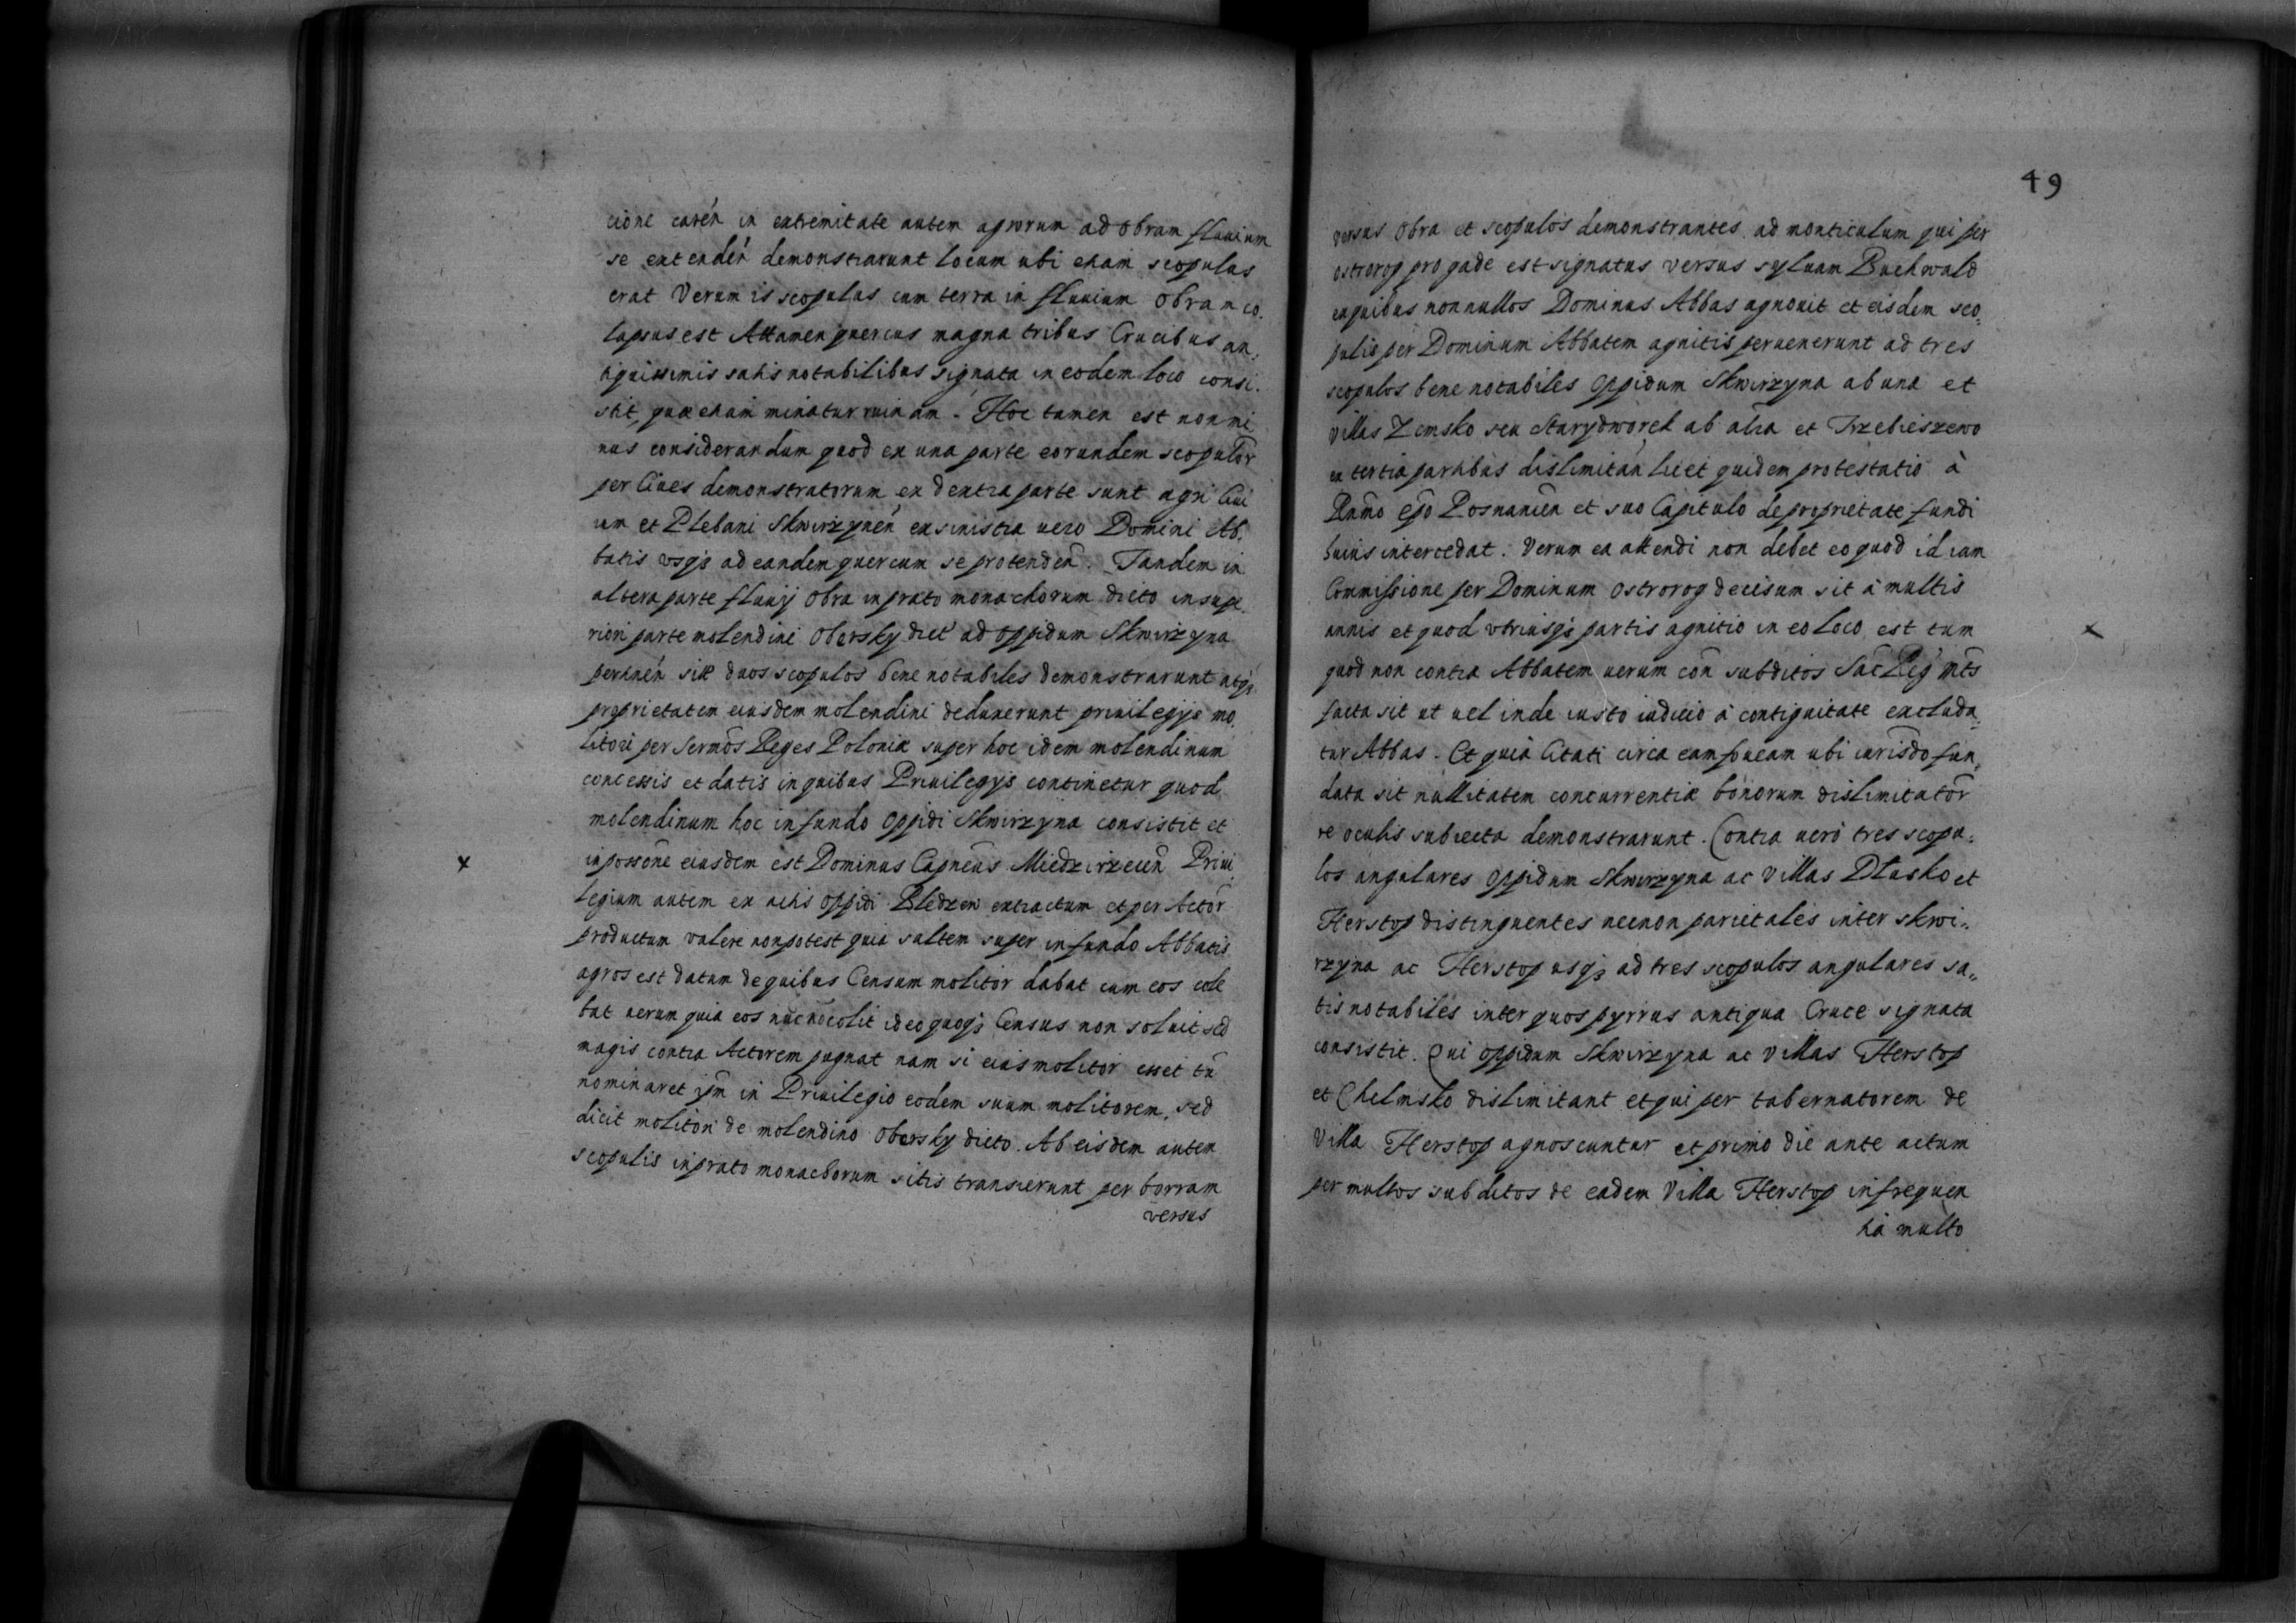 cione carén in extremitate autem agrorum ad obram fluuium
se extendén demonstrarunt locum ubi etiam scopulus
erat Verum is scopulus cum terra in fluuium obram co.
lapsus est Attamen quercus magna tribus Crucibus an,
tiquissimis satis notabilibus signata in eodem loco consi.
stit, quæ etiam minatur ruinam. Hoc tamen est non mi
nus considerandum quod ex una parte eorundem scopulor̃
per Ciues demonstratorum ex dextra parte sunt agri Ciui
um et Plebani Skwirzynén ex sinistra uero Domini Ab.
batis vsq3 ad eandem quercum se protendeñ. Tandem in
altera parte fluuij obra in prato monachorum dicto in supe.
riori parte molendini obersky dict ad oppidum Skwirzyna
pertinén sitæ duos scopulos bene notabiles demonstrarunt atq3
proprietatem eiusdem molendini deduxerunt priuilegijs mo.
litori per Sermõs Reges Poloniæ super hoc idem molendinum
concessis et datis in quibus Priuilegijs continetur quod
molendinum hoc in fundo oppidi Skwirzyna consistit et
in possõne eiusdem est Dominus Capneũs Miedzirzeceñ Priui
legium autem ex actis oppidi Bledzew extractum et per Actor̃
productum valere non potest quia saltem super in fundo Abbatis
agros est datum de quibus Censum molitor dabat cum eos cole
bat uerum quia eos nũc nõ colit ideo quoq3 Census non soluit sed
magis contra Actorem pugnat nam si eius molitor esset tũ
nominaret ipm̃ in Priuilegio eodem suum molitorem, sed
dicit molitori de molendino obersky dicto. Ab eisdem autem
scopulis in prato monachorum sitis transierunt per borram
versus
49
versus obra et scopulos demonstrantes ad monticulum qui per
ostrorog pro gade est signatus versus syluam Buchwald
ex quibus nonnullos Dominus Abbas agnouit et eisdem sco,
pulis per Dominum Abbatem agnitis peruenerunt ad tres
scopulos bene notabiles oppidum Skwirzyna ab una et
villas Zemsko seu Starydworek ab alia et Trzebieszewo
ex tertia partibus dislimitañ licet quidem protestatio à
Rñmo Epõ Posnanieñ et suo Capitulo de proprietate fundi
huius intercedat. Verum ea attendi non debet eo quod id iam
Commissione per Dominum ostrorog decisum sit à multis
annis et quod vtriusq3 partis agnitio in eo loco est tum
quod non contra Abbatem uerum coñ subditos Sac̃ Reg̃ mt̃s
facta sit ut uel inde iusto iudicio à contiguitate excluda,
tur Abbas. Et quia Citati circa eam foueam ubi iurisdo fun,
data sit nullitatem concurrentiæ bonorum dislimitator̃
re oculis subiecta demonstrarunt. Contra uero tres scopu,
los angulares oppidum Skwirzyna ac villas Dłusko et
Herstop distinguentes necnon parietales inter Skwi,
rzyna ac Herstop usq3 ad tres scopulos angulares sa,
tis notabiles inter quos pyrrus antiqua Cruce signata
consistit. Qui oppidum Skwirzyna ac villas Herstop
et Chelmsko dislimitant et qui per tabernatorem de
Villa Herstop agnoscuntur et primo die ante actum
per multos subditos de eadem Villa Herstop in frequen
tia multo